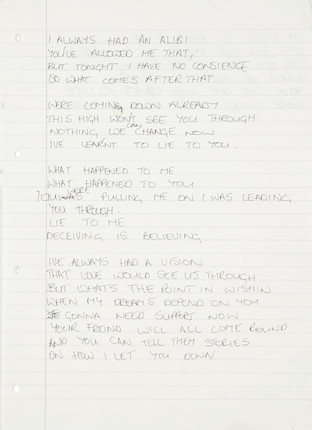 I ALWAYS HAD AN ALIBI
YOU'VE ALLOWED ME THAT,
BUT TONIGHT I HAVE NO CONSIENCE
SO WHAT COMES AFTER THAT
WERE COMING DOWN ALREADY
THIS HIGH WON'T SEE YOU THROUGH
NOTHING WE CAN CHANGE NOW
I'VE LEARNT TO LIE TO YOU.
WHAT HAPPENED TO ME
WHAT HAPPENED TO YOU
WERE PULLING ME ON I WAS LEADING
YOU THROUGH.
LIE TO ME
DECEIVING IS BELIEVING.
IVE ALWAYS HAD A VISION
THAT LOVE WOULD SEE US THROUGH
BUT WHATS THE POINT IN WISHIN
WHEN MY DREAMS DEPEND ON YOU
GONNA NEED SUPPORT NOW
YOUR FREIND WILL ALL COME ROUND
AND YOU CAN TELL THEM STORIES
ON HOW I LET YOU DOWN